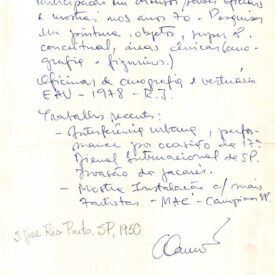 Participação em diversos salões oficiais
e mostras nos anos 70 - Pesquisas
em pintura, objeto, super 8,
conceitual, áreas cênicas (ceno-
grafia e figurinos)
Oficinas de cenografia e vestuário
EAV - 1978 - R.J.
Trabalhos recentes:
- Interferência urbana, perfor-
mance por ocasião da 17ª
Bienal Internacional de SP.
Invasão da jacarés.
- Mostra Instalação c/ mais
artistas - MAC - Campinas SP.
S. José Rio Preto, SP, 1950